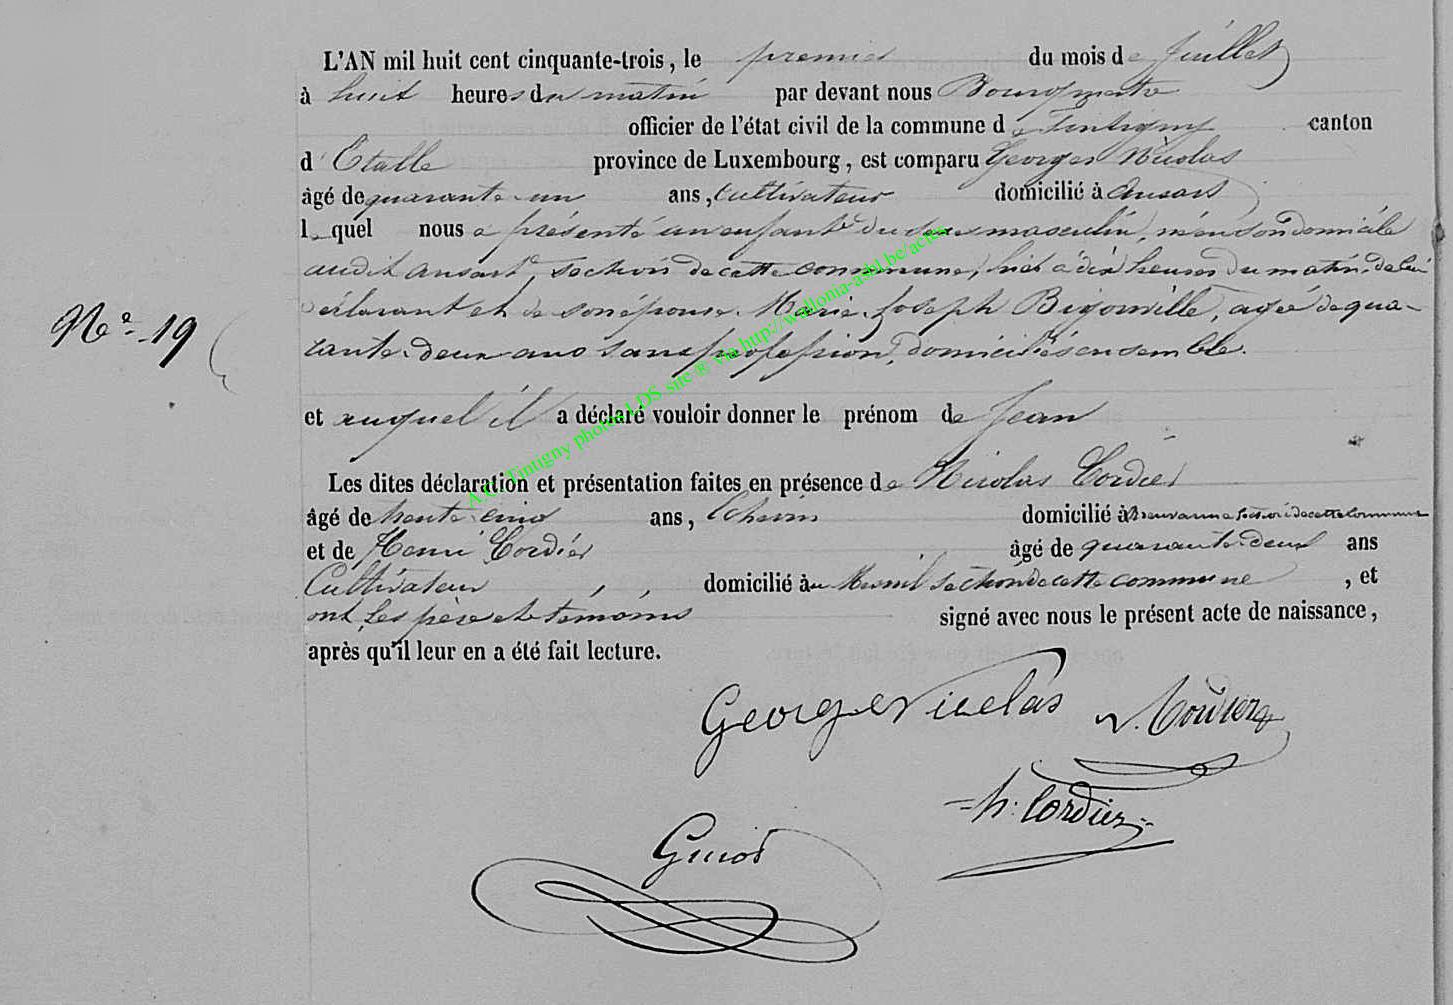 L'AN mil huit cent cinquante-trois, le premier du mois de Juillet
à huit heures du matin par devant nous Bourgmestre
officier de l'état civil de la commune de Tintigny canton
d'Etalle province de Luxembourg, est comparu Georges Nicolas
âgé de quarante-un ans, cultivateur domicilié à Ansart
lequel nous a présenté un enfant du sexe masculin, né en son domicile
audit Ansart, section de cette commune, hier à dix heures du matin, de lui
déclarant et de son épouse Marie Joseph Bigonville, agée de qua-
N° 19
rante-deux ans sans profession, domiciliés ensemble.
et auquel il a déclaré vouloir donner le prénom de Jean
Les dites déclaration et présentation faites en présence de Nicolas Cordier
âgé de trente-cinq ans, Echevin domicilié à Breuvanne section de cette commune
et de Henri Cordier âgé de quarante-deux ans
Cultivateur, domicilié au Mesnil section de cette commune, et
ont les père et témoins signé avec nous le présent acte de naissance,
après qu'il leur en a été fait lecture.
George Nicolas N. Cordier
h. Cordier
A.C. Tintigny photos LDS site ® via http://wallonia-asbl.be/actes